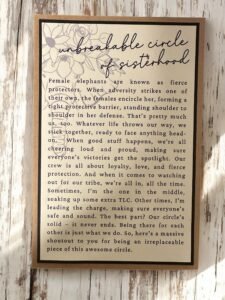 unbreakable circle
of sisterhood
Female elephants are known as fierce
protectors. When adversity strikes one of
their own, the females encircle her, forming a
tight protective barrier, standing shoulder to
shoulder in her defense. That's pretty much
us, too. Whatever life throws our way, we
stick together, ready to face anything head-
on. When good stuff happens, we're all
cheering loud and proud, making sure
everyone's victories get the spotlight. Our
crew is all about loyalty, love, and fierce
protection. And when it comes to watching
out for our tribe, we're all in, all the time.
Sometimes, I'm the one in the middle,
soaking up some extra TLC. Other times, I'm
leading the charge, making sure everyone's
safe and sound. The best part? Our circle's
solid – it never ends. Being there for each
other is just what we do. So, here's a massive
shoutout to you for being an irreplaceable
piece of this awesome circle.